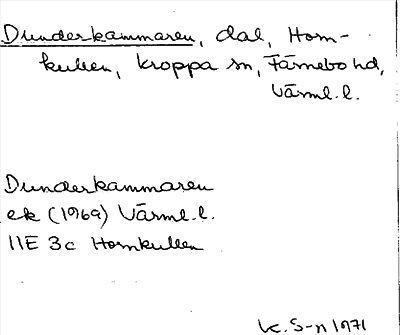 Dunderkammaren, dal, Horn-
kullen, Kroppa sn, Färnebo hd,
Värml. l.
Dunderkammaren
ek (1969) Värml. l.
11E 3c Hornkullen
K. S-n 1971